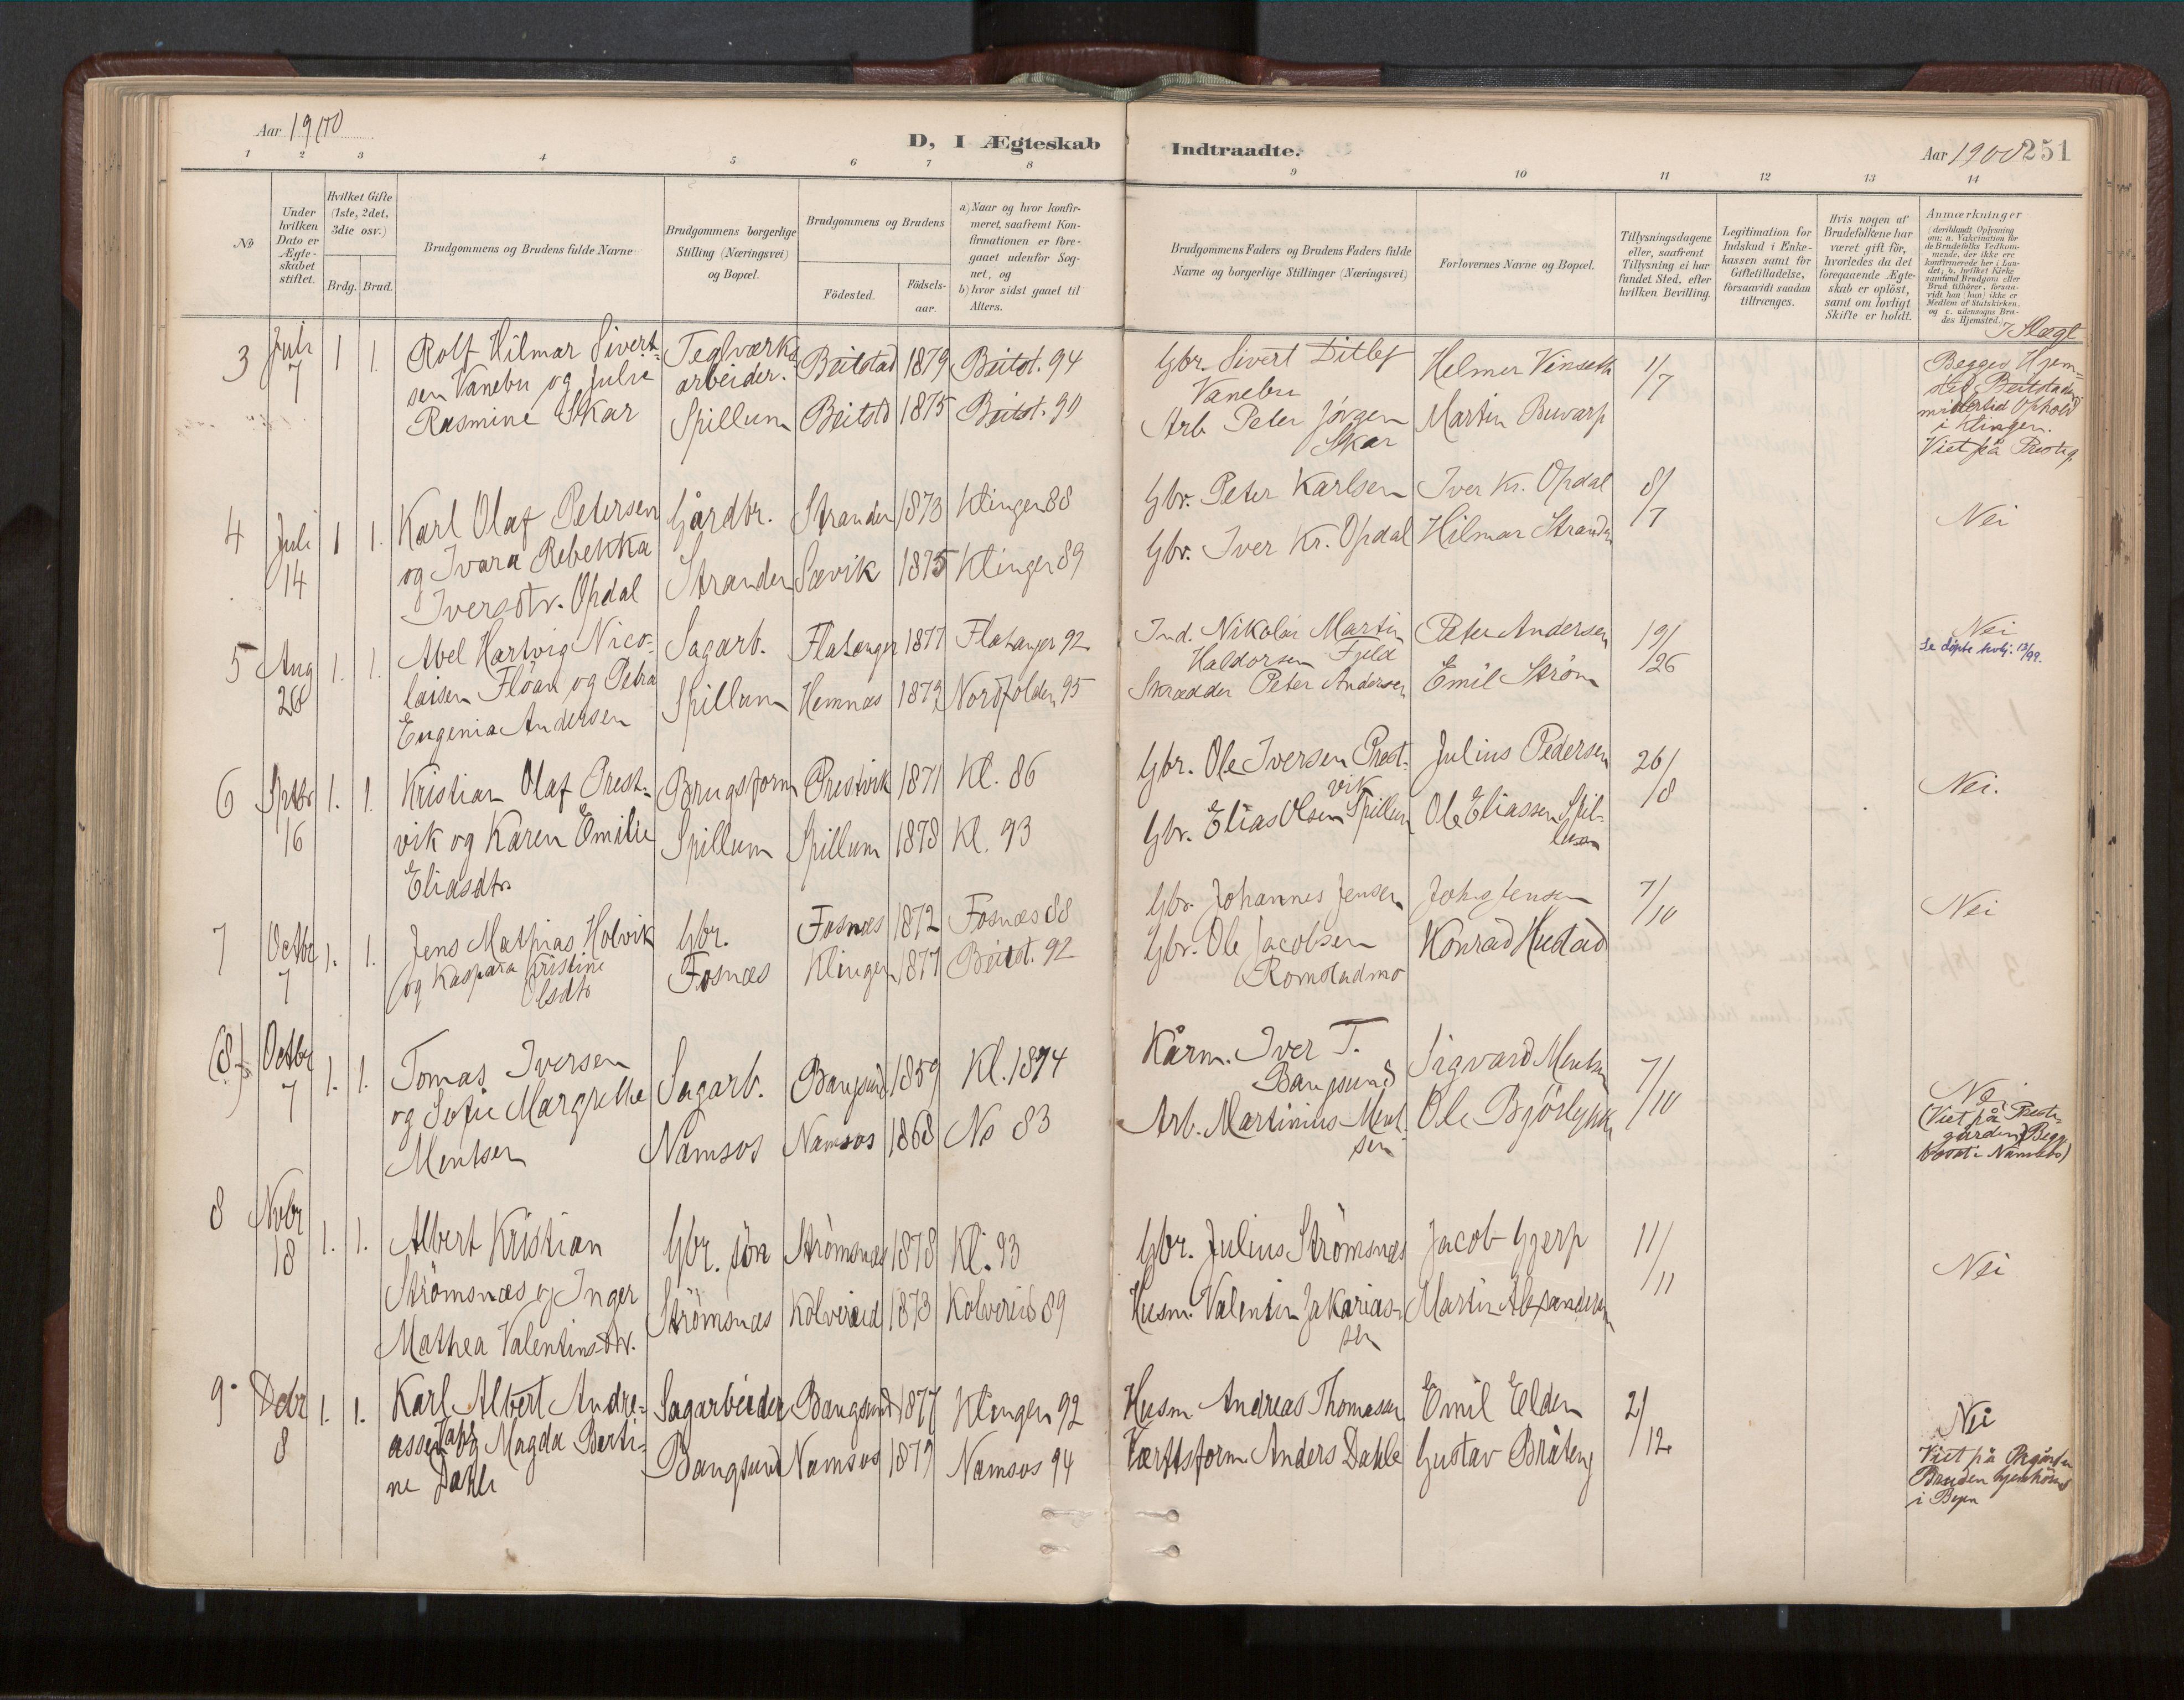 Aar 1900
D, I Ægteskab Indtraadte.
Aar 1900 251
1 2 3 4 5 6 7 8 9 10 11 12 13 14
No
Under hvilken Dato er Ægteskabet stiftet.
Hvilket Gifte (1ste, 2det, 3die osv.)
Brdg. Brud.
Brudgommens og Brudens fulde Navne
Brudgommens borgerlige Stilling (Næringsvei) og Bopæl.
Brudgommens og Brudens
Fødested.
Fødselsaar.
a) Naar og hvor konfirmeret, saafremt Konfirmationen er foregaaet udenfor Sognet, og
b) hvor sidst gaaet til Alters.
Brudgommens Faders og Brudens Faders fulde Navne og borgerlige Stillinger (Næringsvei)
Forlovernes Navne og Bopæl.
Tillysningsdagene eller, saafremt Tillysning ei har fundet Sted, efter hvilken Bevilling.
Legitimation for Indskud i Enkekassen samt for Giftetilladelse, forsaavidt saadan tiltrænges.
Hvis nogen af Brudefolkene har været gift før, hvorledes da det foregaaende Ægteskab er opløst, samt om lovligt Skifte er holdt.
Anmærkninger (deriblandt Oplysning om: a. Vakcination for de Brudefolks Vedkommende, der ikke ere konfirmerede her i Landet; b. hvilket Kirkesamfund Brudgom eller Brud tilhører, forsaavidt han (hun) ikke er Medlem af Statskirken, og c. udensogns Brudes Hjemsted.)
I Slægt
3 Juli 7 1 1. Rolf Hilmar Sivert-
sen Vanebu og Julie
Rasmine Skar
Teglværks
arbeider.
Spillum
Beitstad 1879 Beitst. 94
Beitstd 1875 Beitst. 90
Gbr. Sivert Ditlef
Vanebu
Arb. Peter Jørgen
Skar
Helmer Vinseth
Martin Buvarp
1/7
Begges Hjem-
sted Beitstaden
midlertid Ophold
i Klingen.
Viet på Prestg.
4 Juli 14 1 1. Karl Olaf Petersen
og Ivara Rebekka
Iversdtr. Opdal
Gårdbr.
Stranden
Stranden 1873 Klingen 88
Sævik 1875 Klingen 89
Gbr. Peter Karlsen
Gbr. Iver Kr. Opdal
Iver Kr. Opdal
Hilmar Stranden
8/7
Nei
5 Aug 26 1. 1. Abel Hartvig Nico-
laisen Flöan og Petra
Eugenia Andersen
Sagarb.
Spillum
Flatanger 1877 Flatanger 92
Hemnæs 1879 Nordfolden 95
Ind. Nikolai Martin
Haldorsen Fjeld
Skrædder Peter Andersen
Peter Andersen
Emil Strøm
19/26
Nei
Se døpte 12/99.
6 Sptbr 16 1. 1. Kristian Olaf Prest-
vik og Karen Emilie
Eliasdtr
Brugsform
Spillum
Prestvik 1871 Kl. 86
Spillum 1878 Kl. 93
Gbr. Ole Iversen Prest-
vik
Gbr. Elias Olsen Spillum
Julius Pedersen
Ole Eliassen Spil-
lum
26/8
Nei.
7 Octbr 7 1. 1. Jens Mathias Holvik
og Kaspara Kristine
Olsdtr
Gbr.
Fosnæs
Fosnæs 1872 Fosnæs 88
Klingen 1877 Beitst. 92
Gbr. Johannes Jensen
Gbr. Ole Jacobsen
Romstadmo
John Jensen
Konrad Hustad
7/10
Nei
(8) Octbr 7 1. 1. Tomas Iversen
og Sofie Margrethe
Mentsen
Sagarb.
Namsos
Bangsund 1859 Kl. 1874
Namsos 1868 No 83
Kårm. Iver T.
Bangsund
Arb. Martinius Ment-
sen
Sigvard Mentsen
Ole Bjørlykke
7/10
Nei
(Viet på Prest-
gården) Begge
bosat i Namsos)
8 Nvbr 18 1. 1. Albert Kristian
Strömsnæs og Inger
Mathea Valentinsdtr.
Gbr. sön
Strömsnæs
Strömsnæs 1878 Kl. 93
Kolvereid 1873 Kolvereid 89
Gbr. Julius Strömsnæs
Husm. Valentin Zakarias-
sen
Jacob Gjerp
Martin Alexandersen
11/11
Nei
9. Dcbr 8 1. 1. Karl Albert Andre-
assen og Magda Berti-
ne Dahle
Sagarbeider
Bangsund
Bangsund 1877 Klingen 92
Namsos 1879 Namsos 94
Husm. Andreas Thomassen
Værftsform. Anders Dahle
Emil Elden
Gustav Bråten
2/12
Nei
Viet på Prgården
Bruden hjemhörend
i Byen